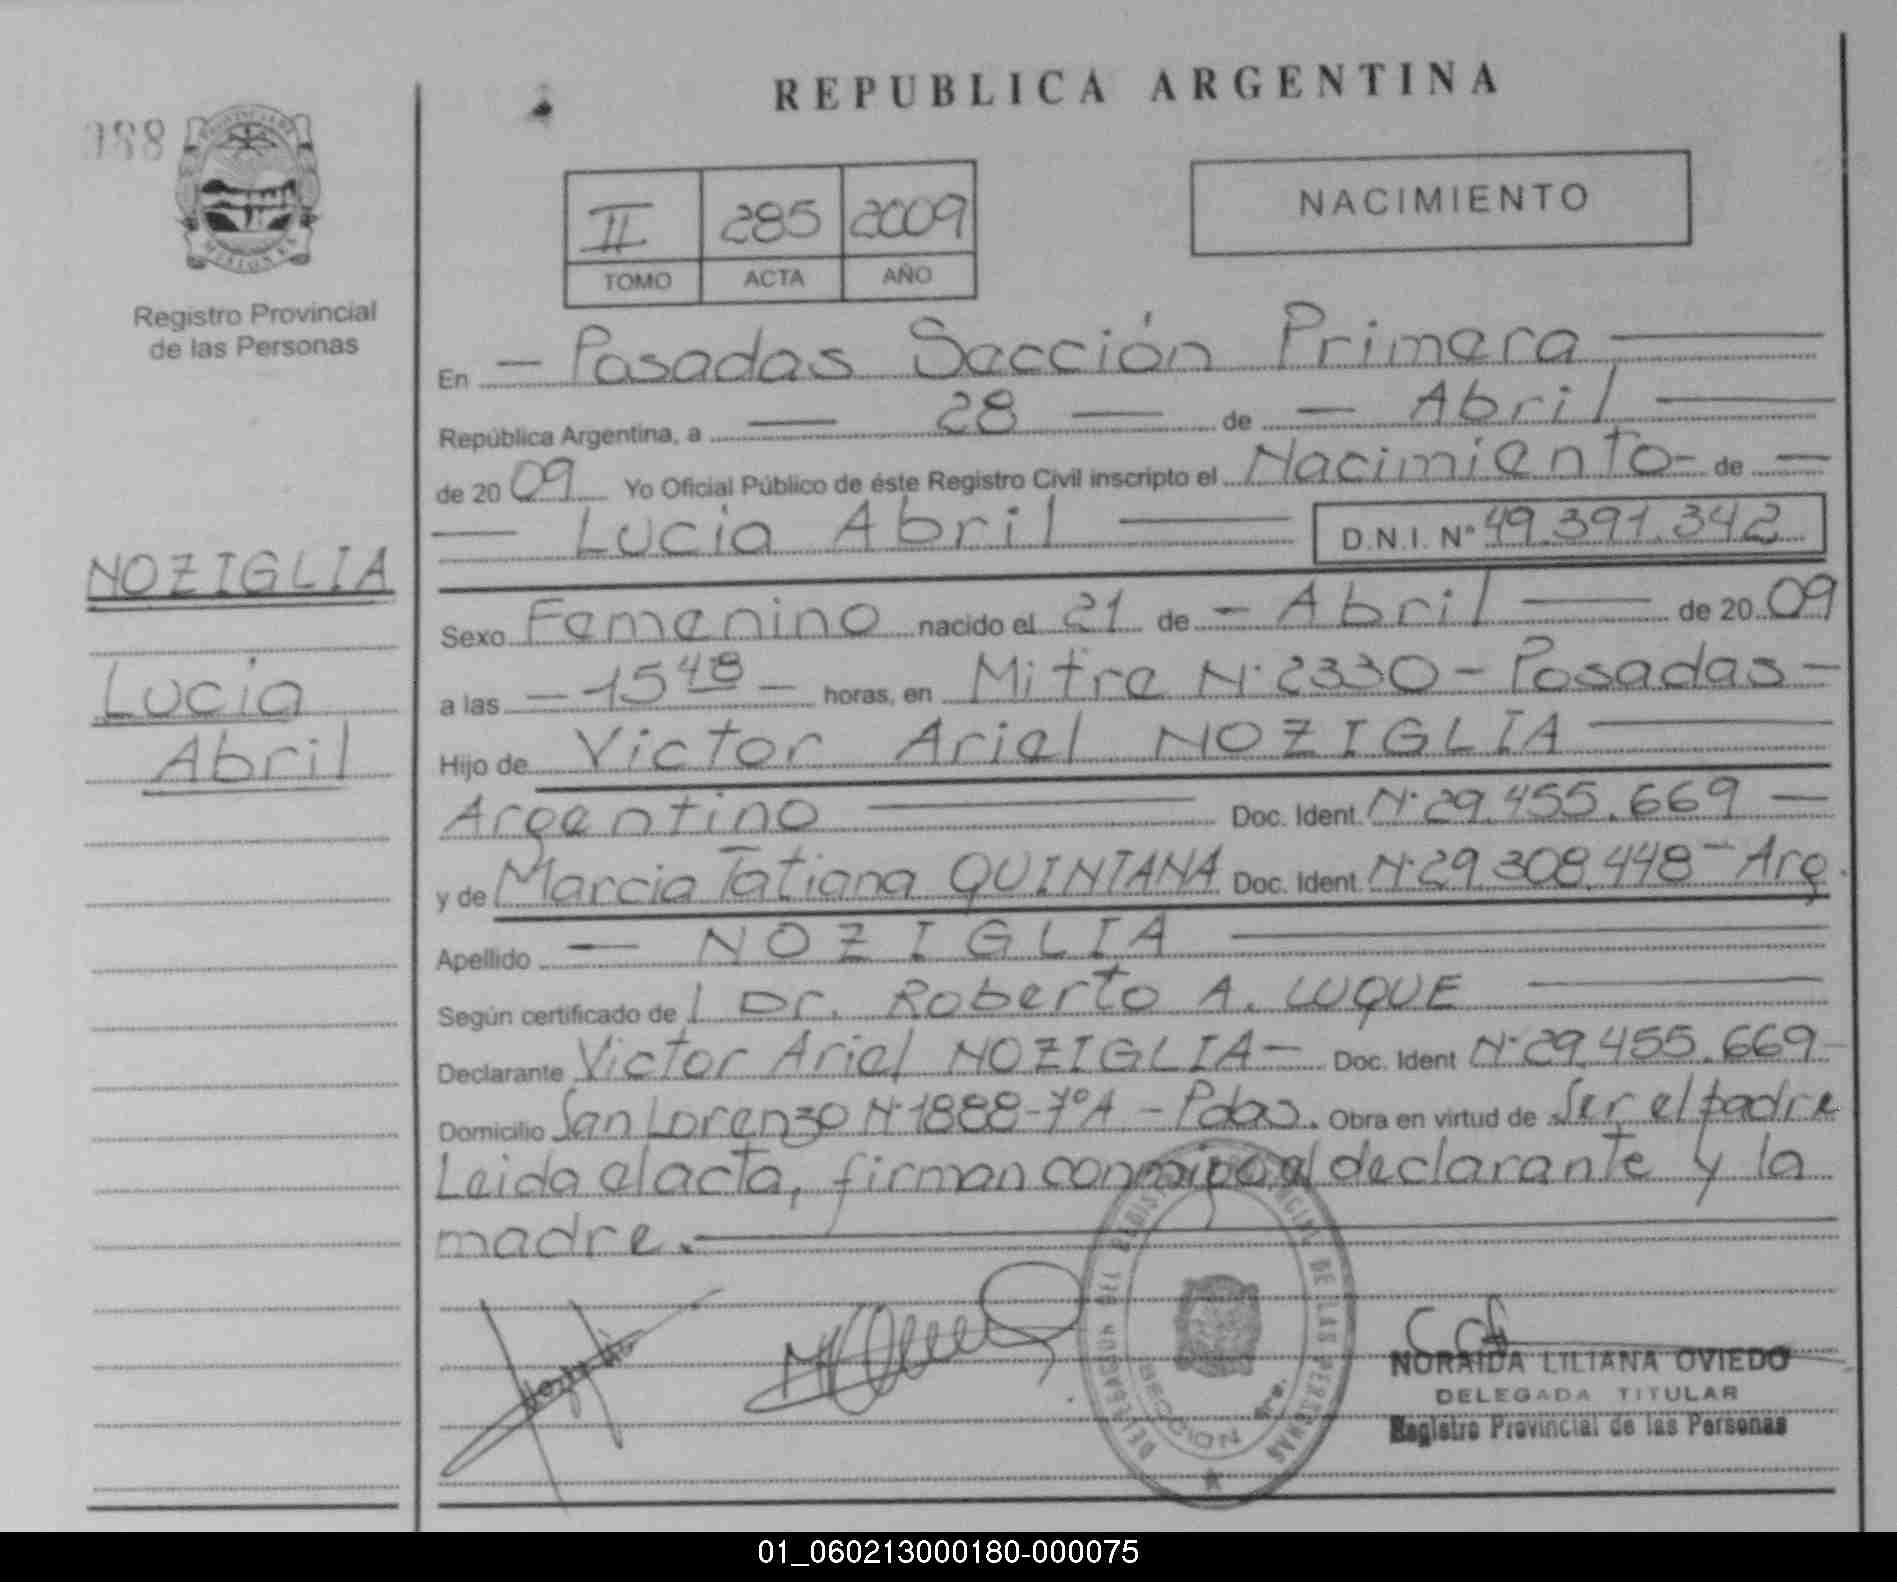 088
PROVINCIA DE
MISIONES
Registro Provincial
de las Personas
NOZIGLIA
Lucía
Abril
REPUBLICA ARGENTINA
II 285 2009
TOMO ACTA AÑO
NACIMIENTO
En — Posadas Sección Primera
República Argentina, a — 28 — de — Abril
de 20 09 Yo Oficial Público de éste Registro Civil inscripto el Nacimiento - de —
— Lucía Abril — D.N.I. Nº 49.391.342
Sexo Femenino nacido el 21 de — Abril — de 20 09
a las — 15 48 — horas, en Mitre Nº 2330 - Posadas -
Hijo de Victor Ariel NOZIGLIA
Argentino — Doc. Ident. Nº 29.455.669 —
y de Marcia Tatiana QUINTANA Doc. Ident. Nº 29.308.448 - Arg.
Apellido — NOZIGLIA
Según certificado de l Dr. Roberto A. LUQUE
Declarante Victor Ariel NOZIGLIA - Doc. Ident Nº 29.455.669 -
Domicilio San Lorenzo Nº 1888 - 7º A - Pdas. Obra en virtud de Ser el padre
Leida el acta, firman conmigo, el declarante y la
madre.
REGISTRO PROVINCIAL DE LAS PERSONAS
DELEGACION
SECCION 1ra.
NORAIDA LILIANA OVIEDO
DELEGADA TITULAR
Registro Provincial de las Personas
01_060213000180-000075